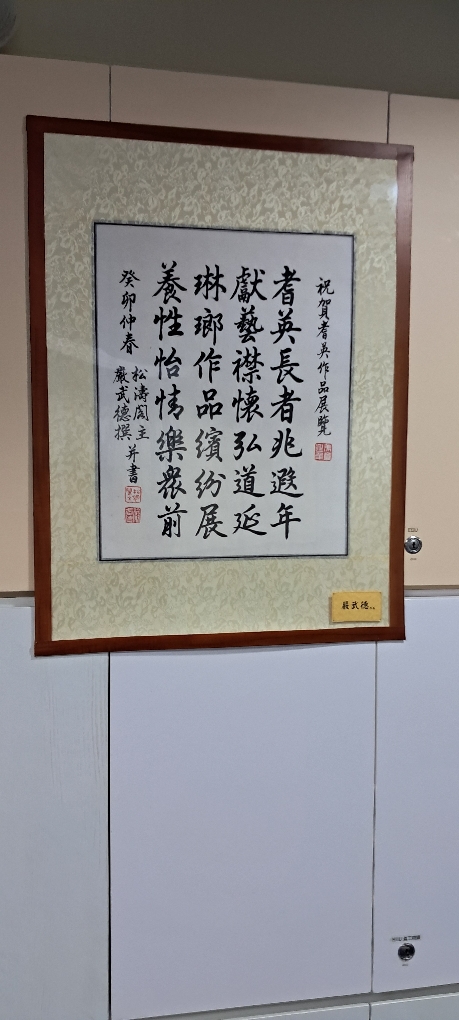 祝賀耆英作品展覽
耆英長者兆遐年
獻藝襟懷弘道延
琳瑯作品繽紛展
養性怡情樂眾前
癸卯仲春
松濤閣主
嚴武德撰并書
嚴武德